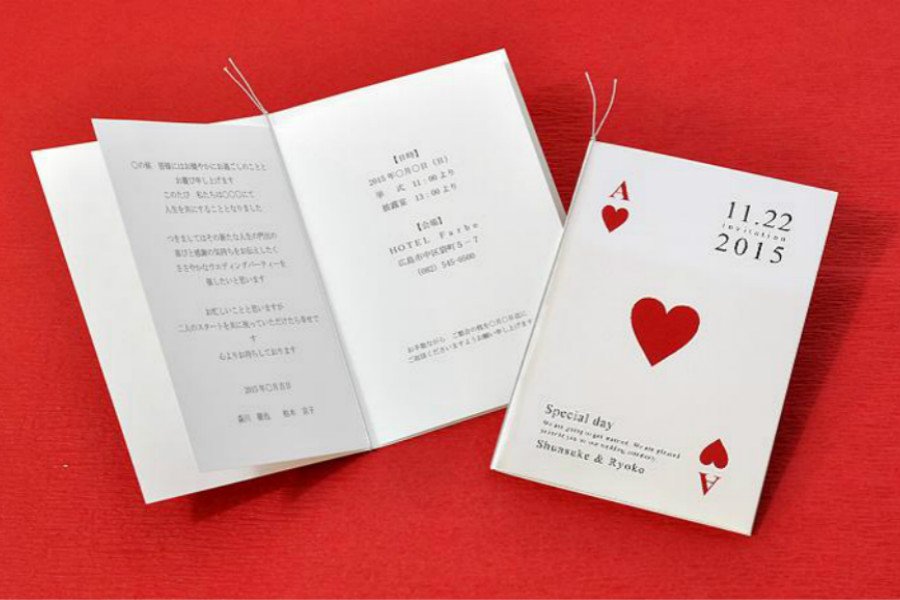 〇の候 皆様にはお健やかにお過ごしのことと
お慶び申し上げます
このたび 私たちは〇〇〇にて
人生を共にすることとなりました
つきましてはその新たな人生の門出の
喜びと感謝の気持ちをお伝えしたく
ささやかなウエディングパーティーを
催したいと思います
お忙しいことと思いますが
二人のスタートを共に祝っていただけたら幸せで
す
心よりお待ちしております
2015年〇月吉日
森川 俊也 松本 京子
【日時】
2015年〇月〇日（日）
挙 式 11：00より
披露宴 13：00より
【会場】
HOTEL Farbe
広島市中区袋町5－7
(082) 545-0500
お手数ながら ご都合の程を〇月〇日迄に
ご返信くださいますようお願い申し上げます
A
11.22
invitation
2015
Special day
We are going to get married. We are pleased
to invite you to our wedding ceremony.
Shunsuke & Ryoko
A